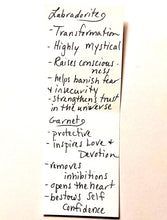 Labradorite
- Transformation
- Highly Mystical
- Raises conscious-
ness
- helps banish fear
& insecurity
- strengthens trust
in the universe
Garnet
- protective
- inspires Love &
Devotion
- removes
inhibitions
- opens the heart
- bestows self
confidence